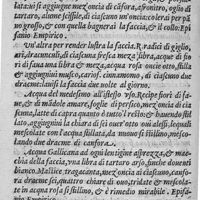 lata: ui si aggiunge mez'oncia di cāfora, aponiro, oglio di
tartaro, alume scissile, di ciascuno mez'oncia: colera per pā
no grosso, & con quella bagnerai la faccia, & il collo: Epi
fanio Empirico.
Vn'altra per render lustra la faccia, R. radici di giglio,
ari, dracunculi, di ciascuna fresca mezza libra, acque di fio
ri di faua una libra & mezza, acqua rosa oncie otto, stilla
& aggiungiui musco, cariof. cinnamomo, di ciascuno due
dracme: lauisi la faccia due uolte al giorno.
Acqua del medesimo all'istesso uso. Recipe fiori di fa-
ue, & di mādole amare, foglie di persico, mez'oncia di cia-
cuna, latte di capra quanto è tutto'l resto; & hauendo stil-
lato, aggiungiui due chiari d'oua con altri simplici, lequali
mescolate con l'acqua stillata, da nuouo si stillino, mescolan-
doui due dracme di canfora.
Acqua Gallicana ad ogni uentigine asprezza, & mac
chia della faccia, una libra di tartaro arso, incēso, douenti
bianco, Mastice, tragacanta, mez'oncia di ciascuno, canfo-
ra dracme sei, quattro chiare di ouo, tridate & mescola-
te in acqua rosa si stillino, & è rimedio mirabile. Epifa-
nio Empirico.